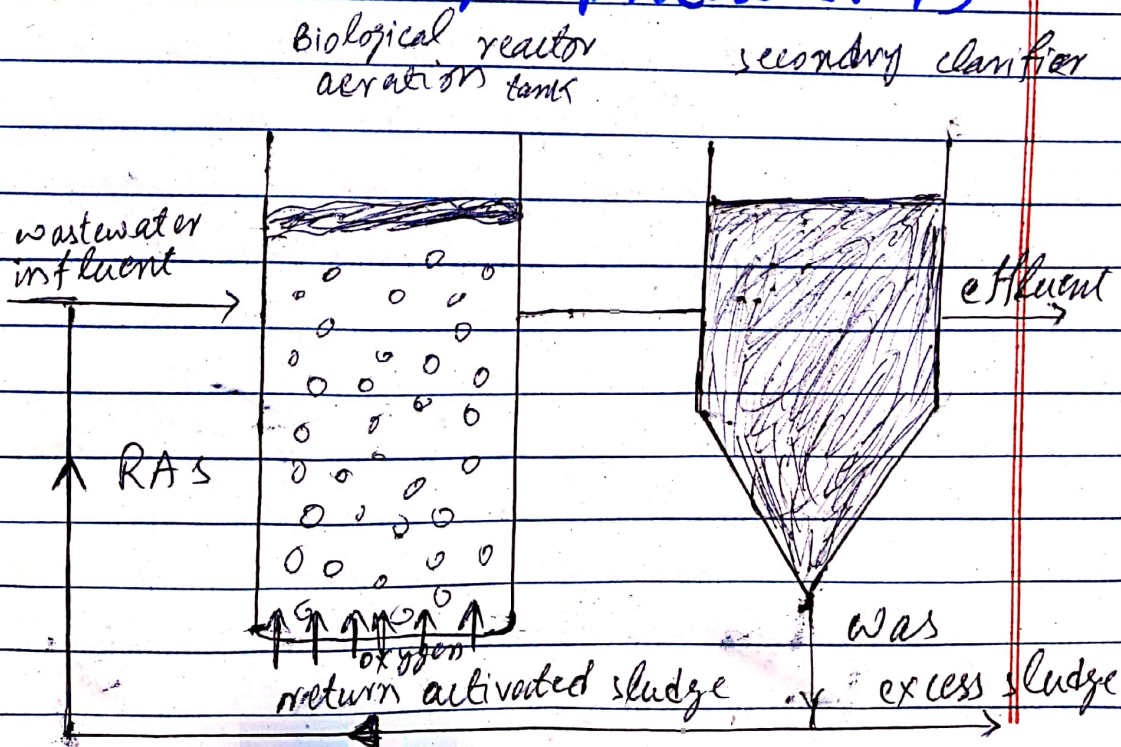 Biological reactor
aeration tank
secondry clarifier
wastewater
influent
effluent
RAs
oxygen
was
return activated sludge
excess sludge